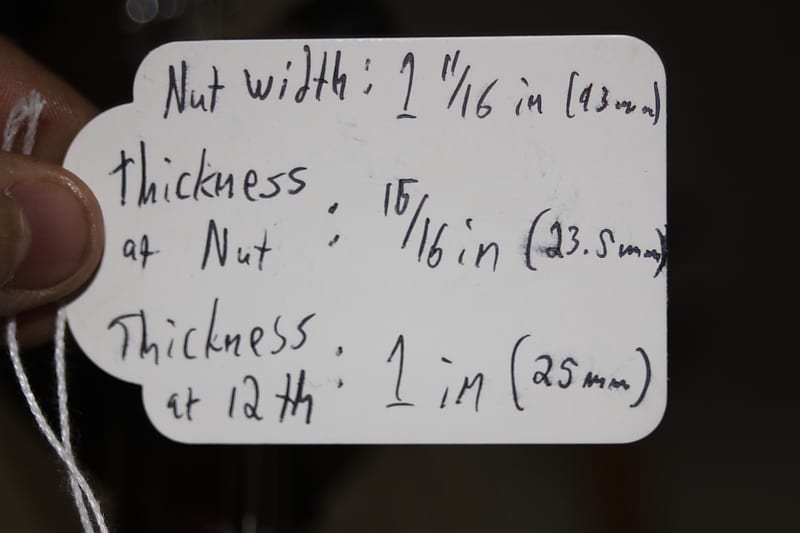 Nut width: 1 11/16 in (43mm)
Thickness
at Nut : 15/16 in (23.5mm)
Thickness
at 12th : 1 in (25mm)